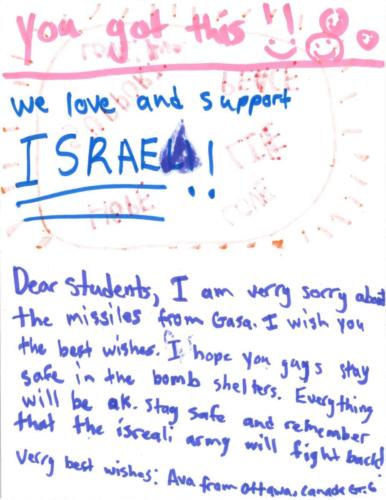 You got this !!
we love and support
ISRAEL!!
PEACE
LOVE
HOPE
Dear Students, I am verry sorry about
the missiles from Gasa. I wish you
the best wishes. I hope you guys stay
safe in the bomb shelters. Everything
will be ok. stay safe and remember
that the isreali army will fight back!
Verry best wishes: Ava from Ottawa, canada Gr.6